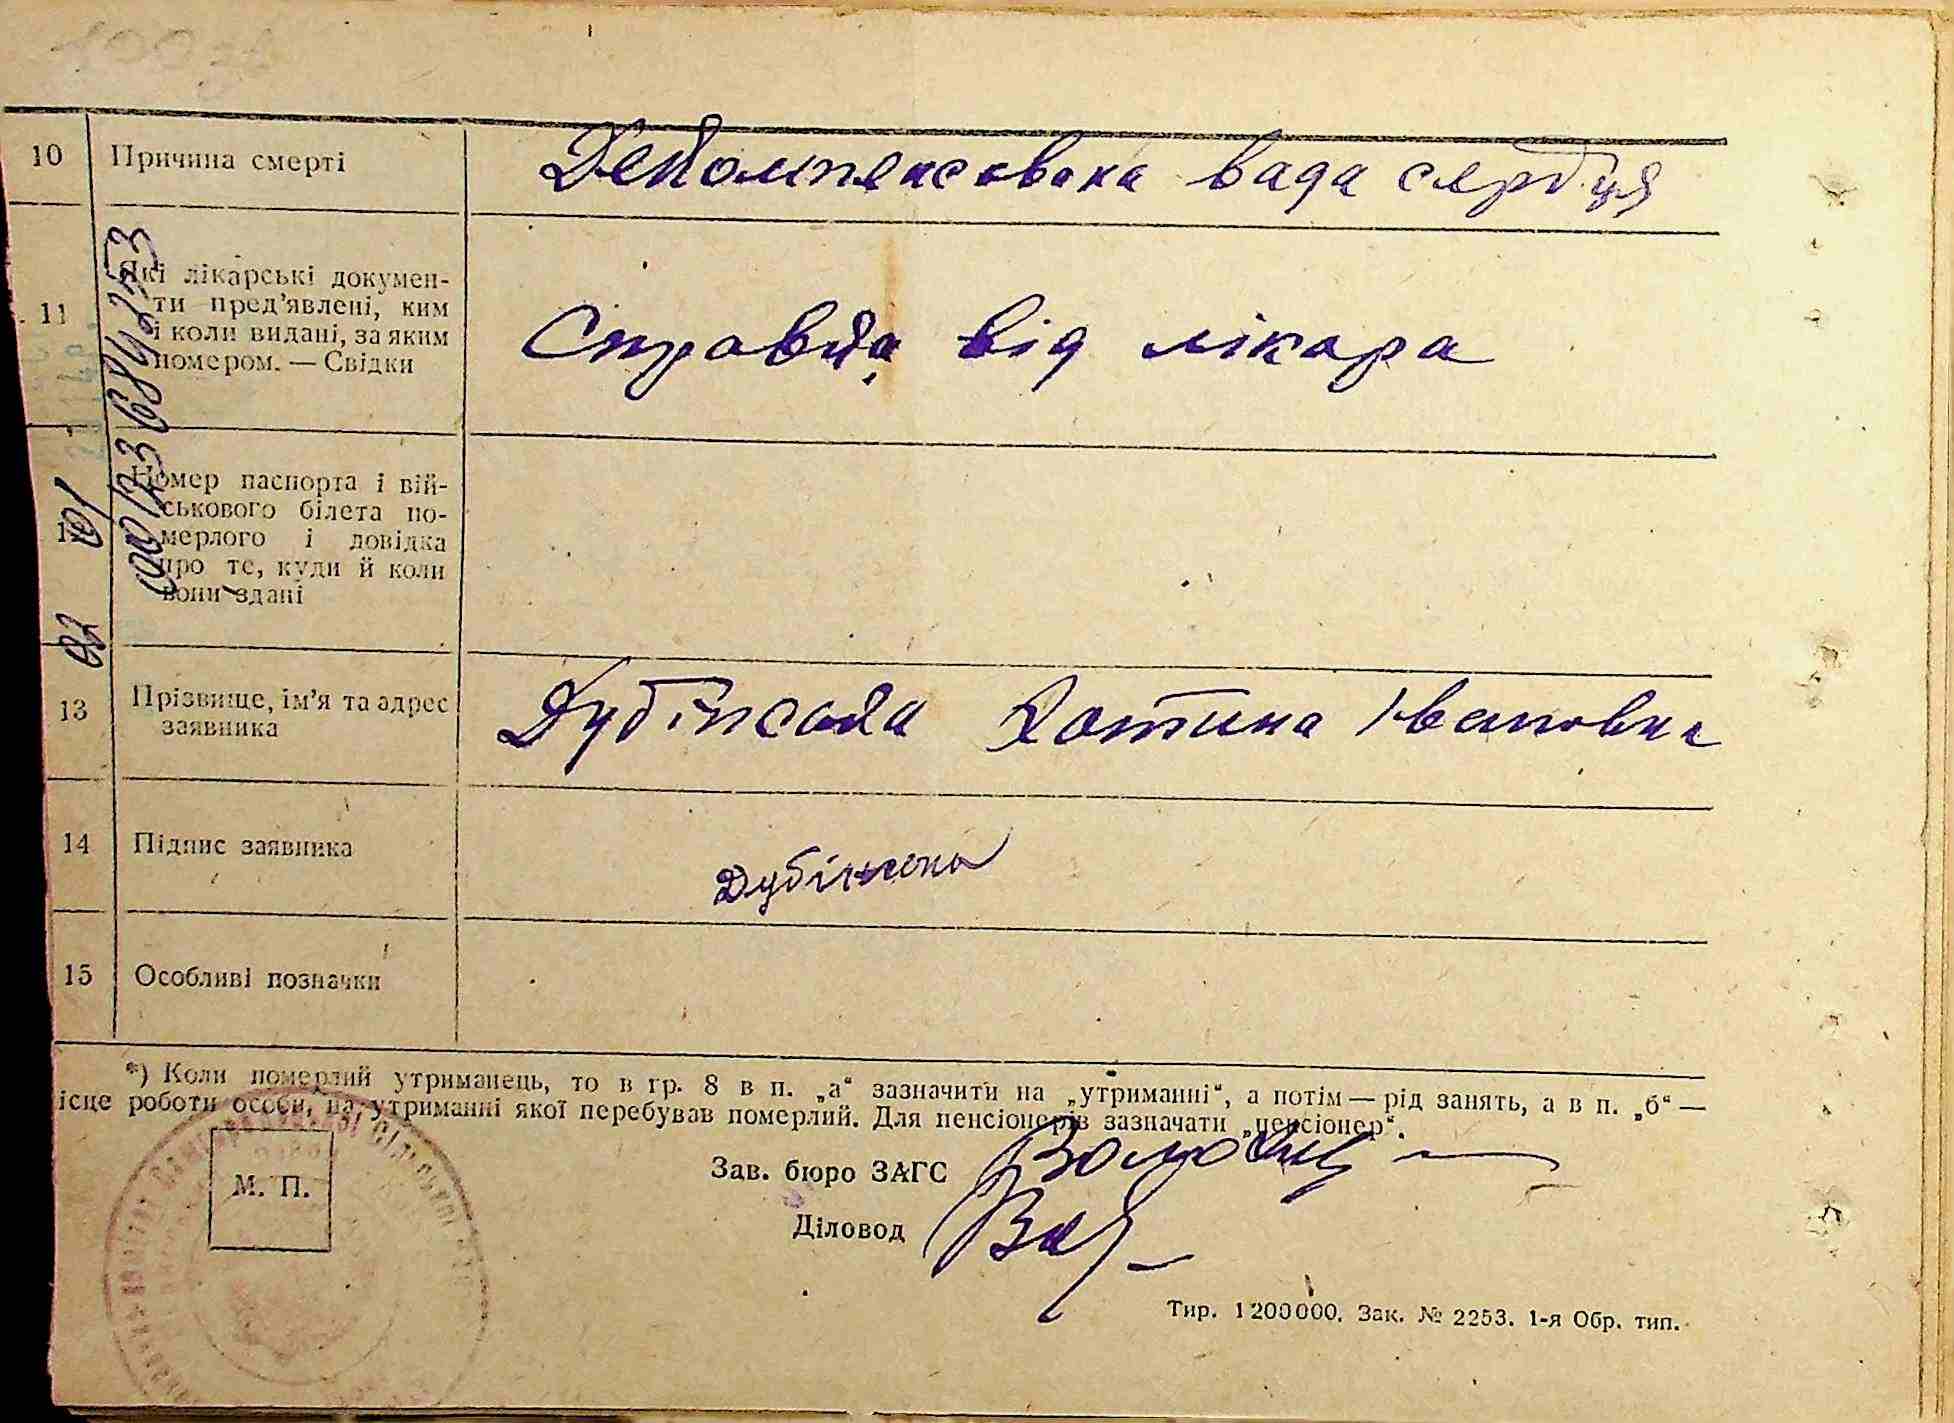 10 Причина смерті Декомпенсована вада сердця
11 Які лікарські докумен-
ти пред'явлені, ким
і коли видані, за яким
номером. — Свідки
Справка від лікара
Номер паспорта і вій-
ськового білета по-
мерлого і довідка
про те, куди й коли
вони здані
13 Прізвище, ім'я та адрес
заявника
Івановна
14 Підпис заявника
15 Особливі позначки
*) Коли померлий утриманець, то в гр. 8 в п. „а“ зазначити на „утриманні“, а потім — рід занять, а в п. „б“ —
ісце роботи особи, на утриманні якої перебував померлий. Для пенсіонерів зазначати „пенсіонер“.
М. П.
Зав. бюро ЗАГС
Діловод
Тир. 1200000. Зак. № 2253. 1-я Обр. тип.